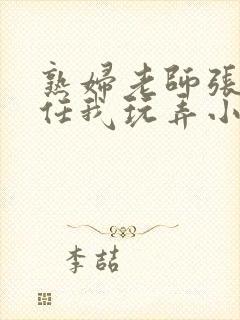 熟婦老師張
任我玩弄小
李喆